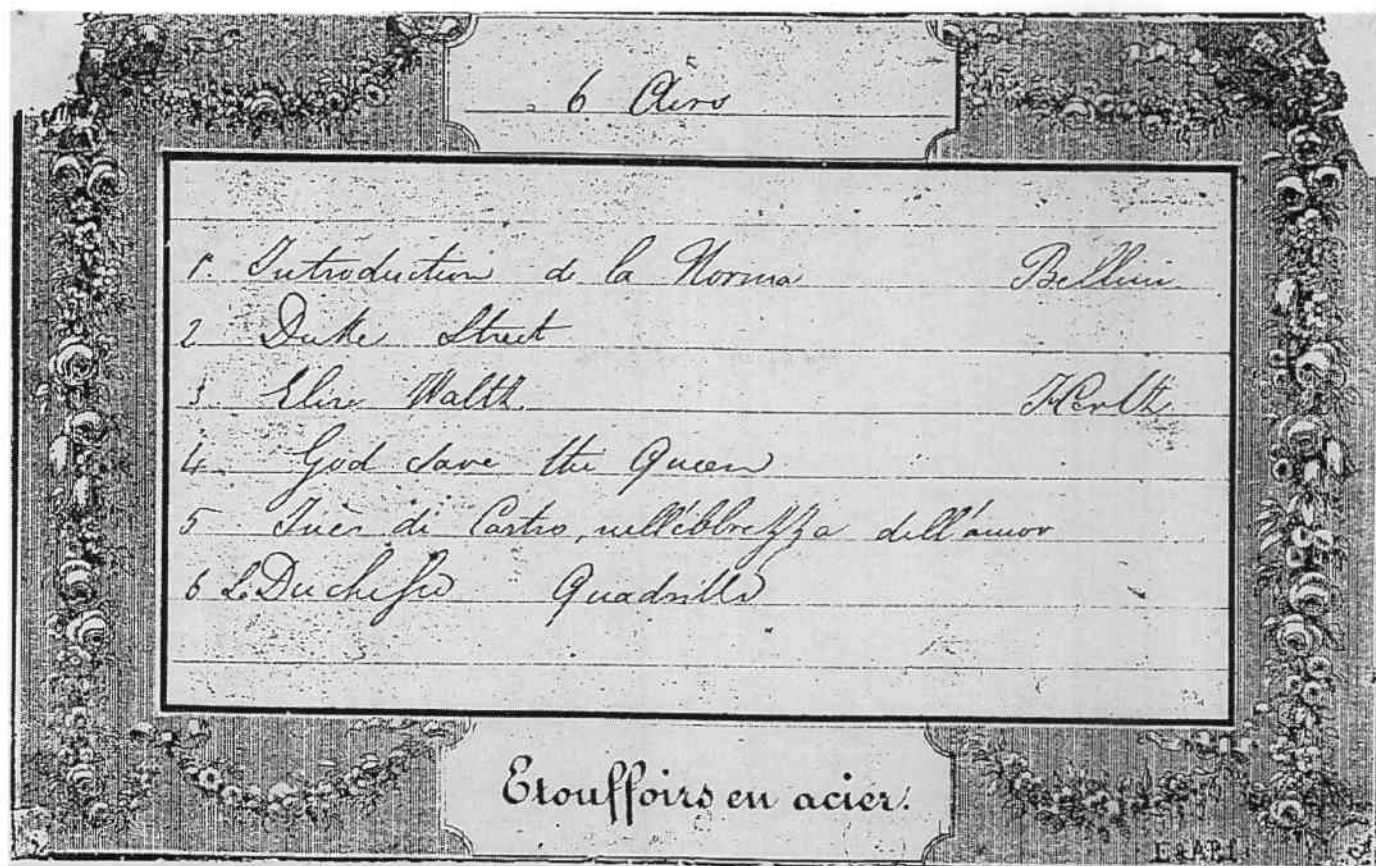 6 Airs
1. Introduction de la Norma Bellini
2 Duke Street
3 Elise Waltz
4 God save the Queen
5 Inès di Castro, nell'ebbrezza dell'amor
6 La Duchesse Quadrille
Etouffoirs en acier.